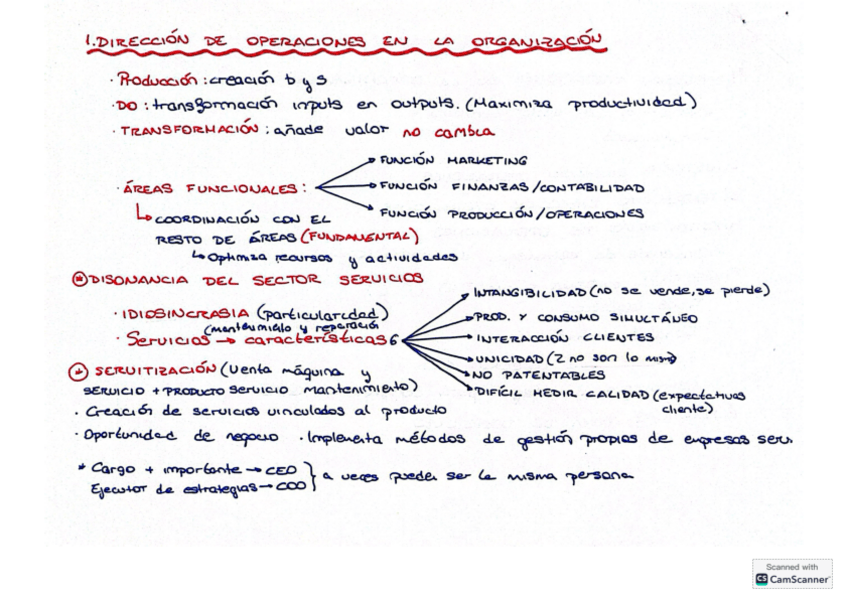 1. DIRECCIÓN DE OPERACIONES EN LA ORGANIZACIÓN
· Producción: creación b y s
· DO: transformación inputs en outputs. (Maximiza productividad)
· TRANSFORMACIÓN: añade valor no cambia
· ÁREAS FUNCIONALES:
FUNCIÓN MARKETING
FUNCIÓN FINANZAS/CONTABILIDAD
FUNCIÓN PRODUCCIÓN/OPERACIONES
↳ COORDINACIÓN CON EL
RESTO DE ÁREAS (FUNDAMENTAL)
↳ Optimiza recursos y actividades
* DISONANCIA DEL SECTOR SERVICIOS
· IDIOSINCRASIA (particularidad)
(mantenimiento y reparación
· Servicios → características 6
INTANGIBILIDAD (no se vende, se pierde)
PROD. Y CONSUMO SIMULTÁNEO
INTERACCIÓN CLIENTES
UNICIDAD (2 no son lo mismo)
NO PATENTABLES
DIFÍCIL MEDIR CALIDAD (expectativas
cliente)
* SERVITIZACIÓN (Venta máquina y
SERVICIO + PRODUCTO SERVICIO mantenimiento)
· Creación de servicios vinculados al producto
· Oportunidad de negocio · Implementa métodos de gestión propios de empresas serv.
* Cargo + importante → CEO
Ejecutor de estrategias → COO
} a veces puede ser la misma persona
Scanned with
CS CamScanner